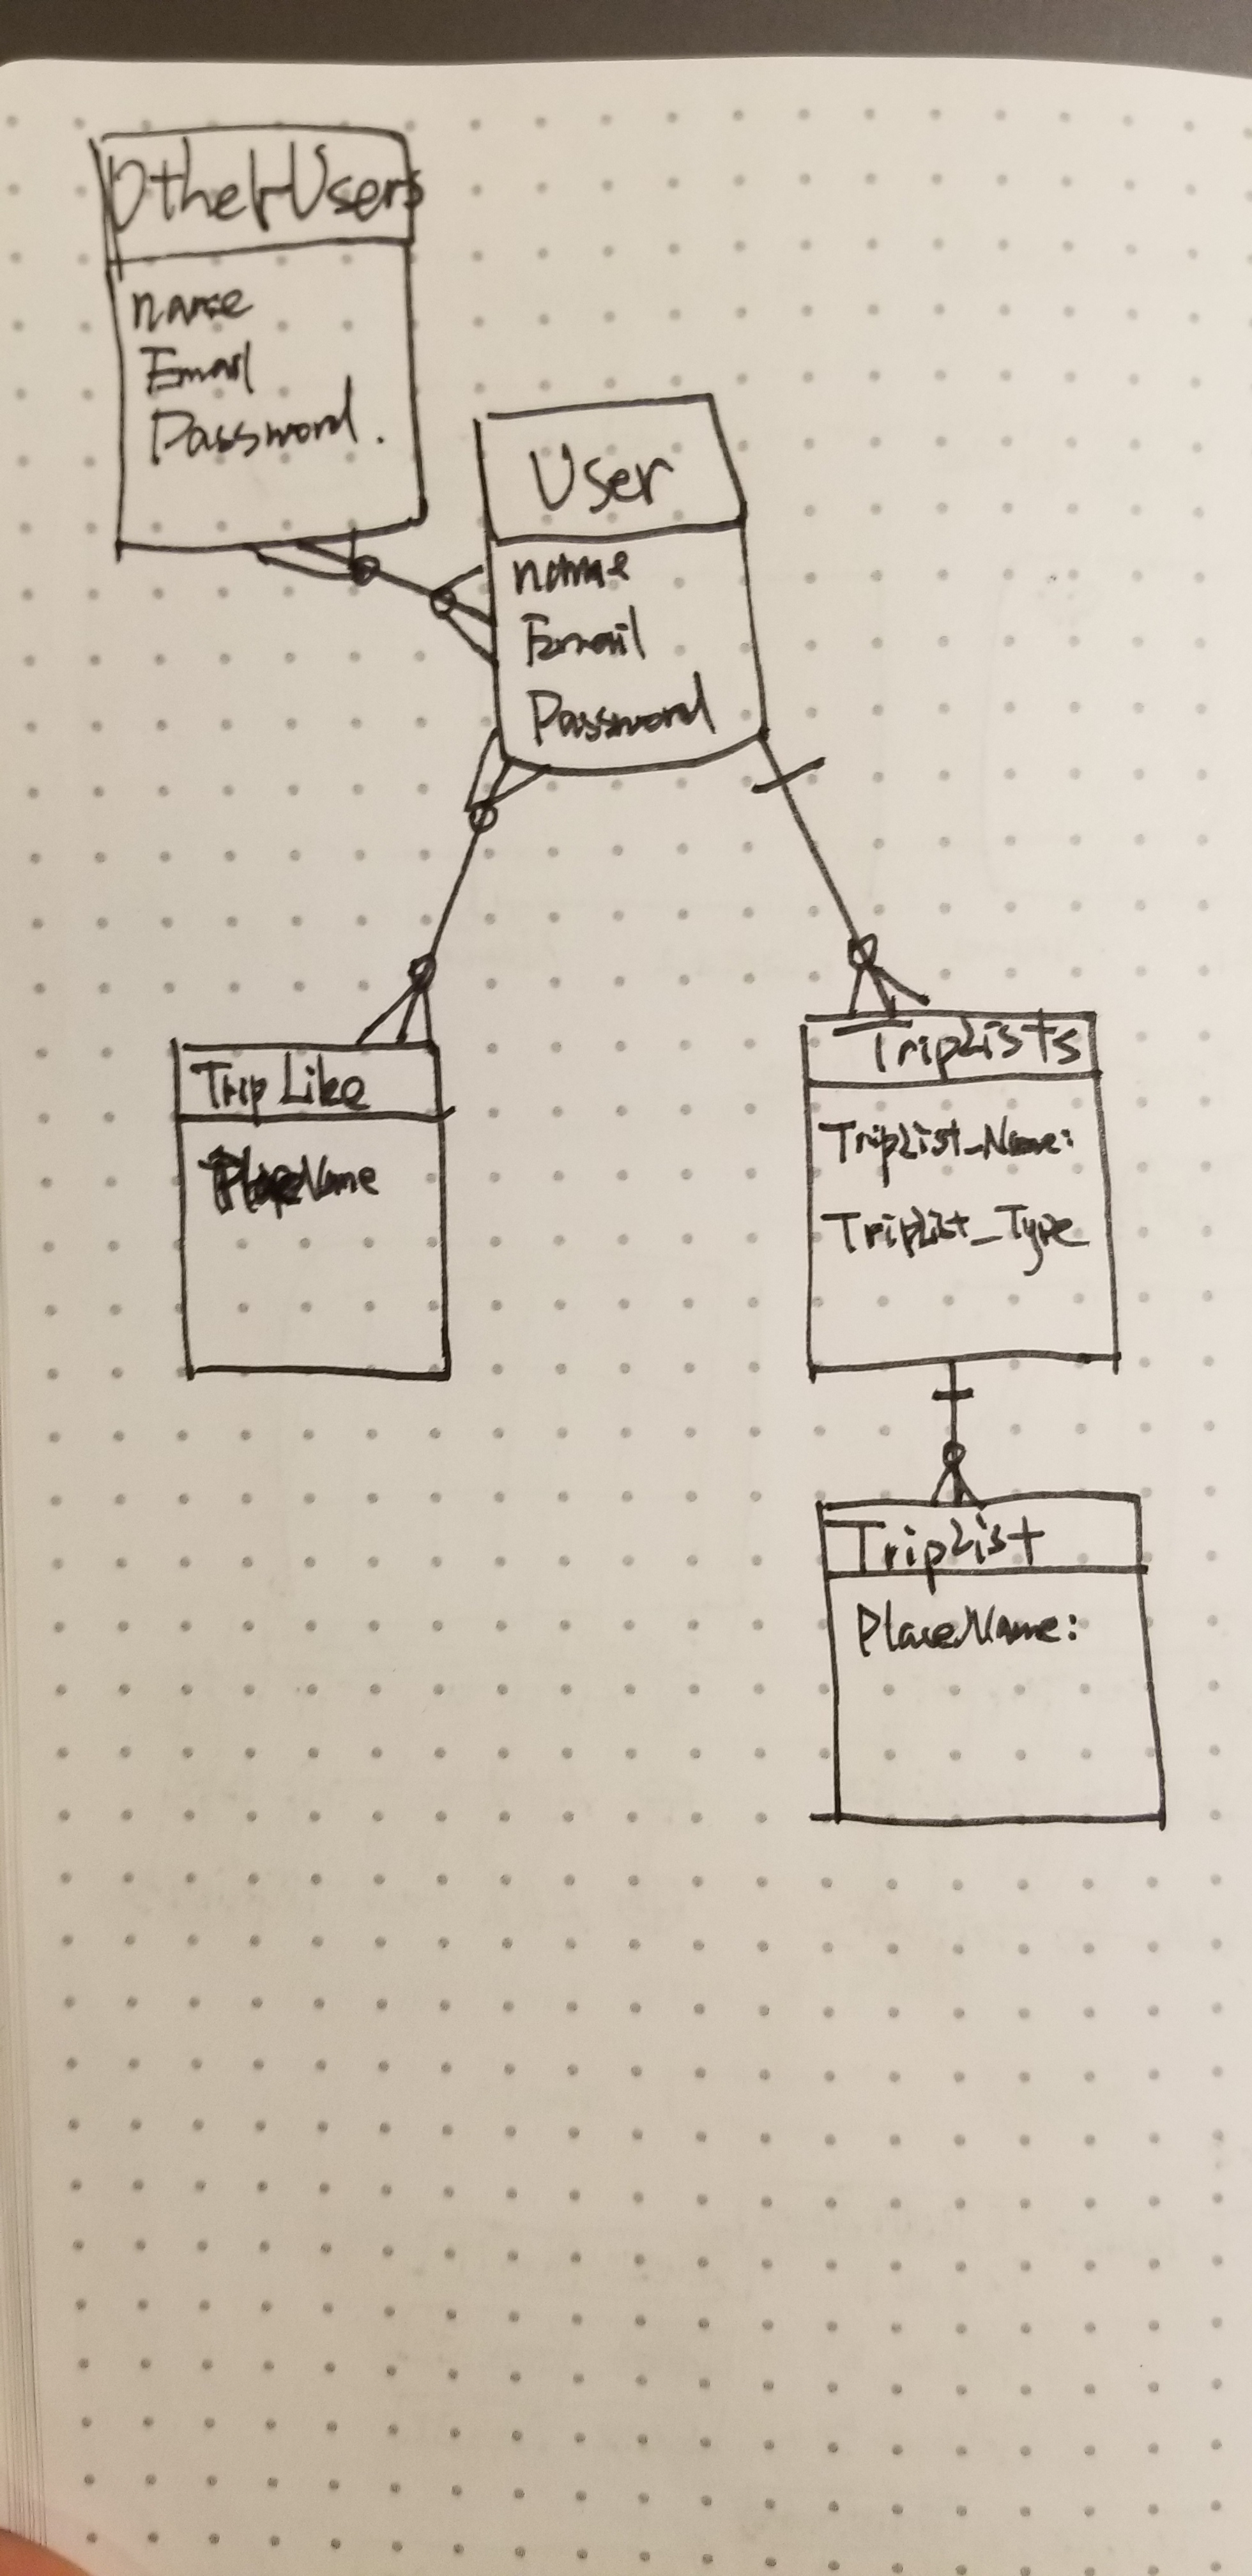 Other Users
name
Email
Password.
User
name
Email
Password
Trip Like
PlaceName
TripLists
TripList_Name:
TripList_Type
TripList
PlaceName: